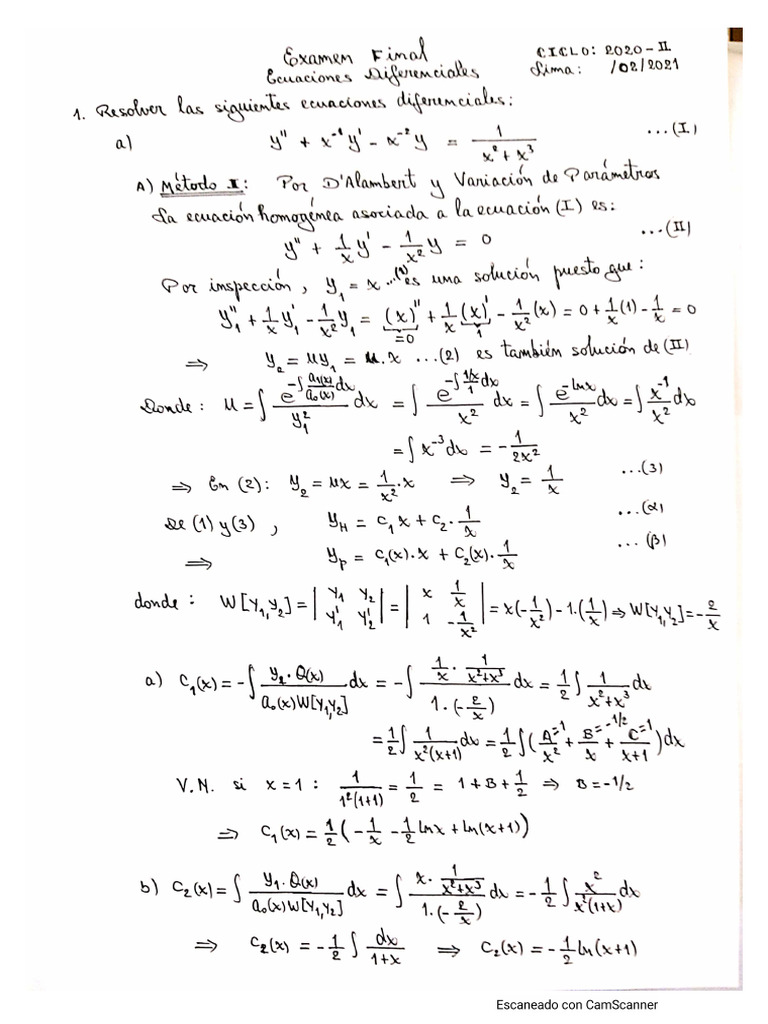 Examen Final
CICLO: 2020-II
Ecuaciones Diferenciales
Lima: /02/2021
1. Resolver las siguientes ecuaciones diferenciales:
a) y'' + x⁻¹y' - x⁻²y = 1/(x²+x³) ...(I)
A) Método I: Por D'Alambert y Variación de Parámetros
La ecuación homogénea asociada a la ecuación (I) es:
y'' + 1/x y' - 1/x² y = 0 ...(II)
Por inspección, y₁ = x ...(1) es una solución puesto que:
y₁'' + 1/x y₁' - 1/x² y₁ = (x)'' + 1/x (x)' - 1/x² (x) = 0 + 1/x (1) - 1/x = 0
=0 1
⇒ y₂ = μy₁ = μ.x ...(2) es también solución de (II)
Donde: μ = ∫ e^(-∫ a₁(x)/a₀(x) dx)/y₁² dx = ∫ e^(-∫ (1/x)/1 dx)/x² dx = ∫ e^(-lnx)/x² dx = ∫ x⁻¹/x² dx
= ∫ x⁻³ dx = -1/(2x²)
⇒ En (2): y₂ = μx = 1/x² · x ⇒ y₂ = 1/x ...(3)
De (1) y (3), y_H = c₁x + c₂·1/x ...(α)
⇒ y_p = c₁(x)·x + c₂(x)·1/x ...(β)
donde: W[y₁,y₂] = |y₁ y₂; y₁' y₂'| = |x 1/x; 1 -1/x²| = x(-1/x²) - 1.(1/x) ⇒ W[y₁,y₂] = -2/x
a) c₁(x) = -∫ y₂·Q(x)/(a₀(x)W[y₁,y₂]) dx = -∫ (1/x · 1/(x²+x³))/(1·(-2/x)) dx = 1/2 ∫ 1/(x²+x³) dx
= 1/2 ∫ 1/(x²(x+1)) dx = 1/2 ∫ (A=1/x² + B=-1/2/x + C=1/(x+1)) dx
V.N. si x=1: 1/(1²(1+1)) = 1/2 = 1 + B + 1/2 ⇒ B = -1/2
⇒ c₁(x) = 1/2 (-1/x - 1/2 lnx + ln(x+1))
b) c₂(x) = ∫ y₁·Q(x)/(a₀(x)W[y₁,y₂]) dx = ∫ (x · 1/(x²+x³))/(1·(-2/x)) dx = -1/2 ∫ x²/(x²(1+x)) dx
⇒ c₂(x) = -1/2 ∫ dx/(1+x) ⇒ c₂(x) = -1/2 ln(x+1)
Escaneado con CamScanner